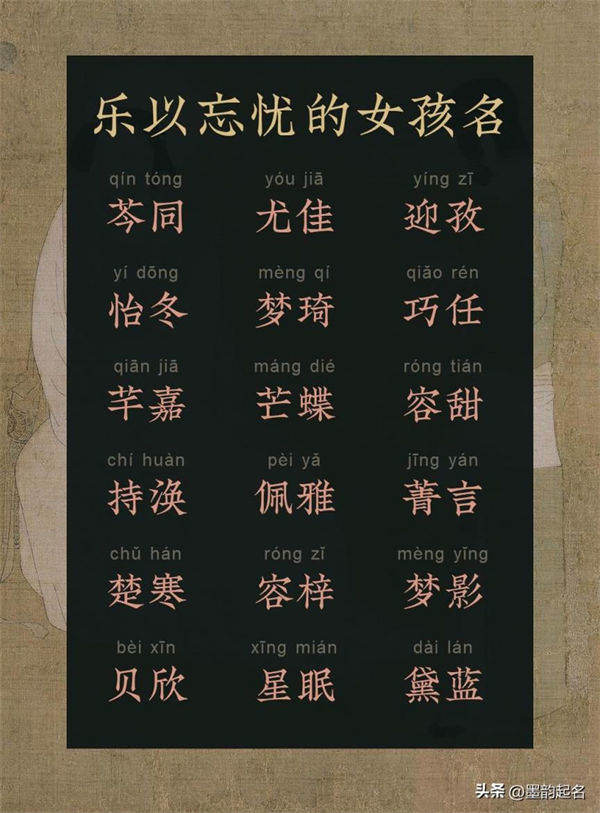 乐以忘忧的女孩名
qín tóng yóu jiā yíng zī
芩同 尤佳 迎孜
yí dōng mèng qí qiǎo rén
怡冬 梦琦 巧任
qiān jiā máng dié róng tián
芊嘉 芒蝶 容甜
chí huàn pèi yǎ jīng yán
持涣 佩雅 菁言
chǔ hán róng zǐ mèng yǐng
楚寒 容梓 梦影
bèi xīn xīng mián dài lán
贝欣 星眠 黛蓝
头条 @墨韵起名